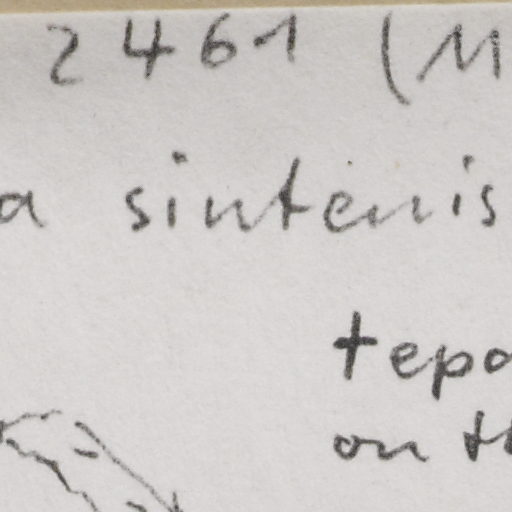 2461 (M
a sintenis
tepa
on th